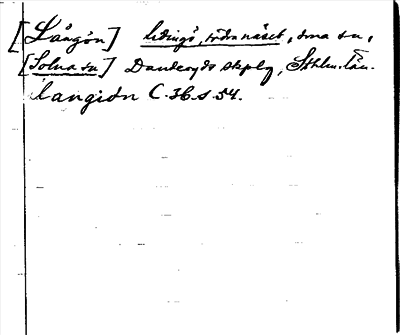 [Långön] Lidingö, södra näset, sma sn,
[Solna sn] Danderyds skplg, Sthlm.län.
Langiön C.36.s.54.